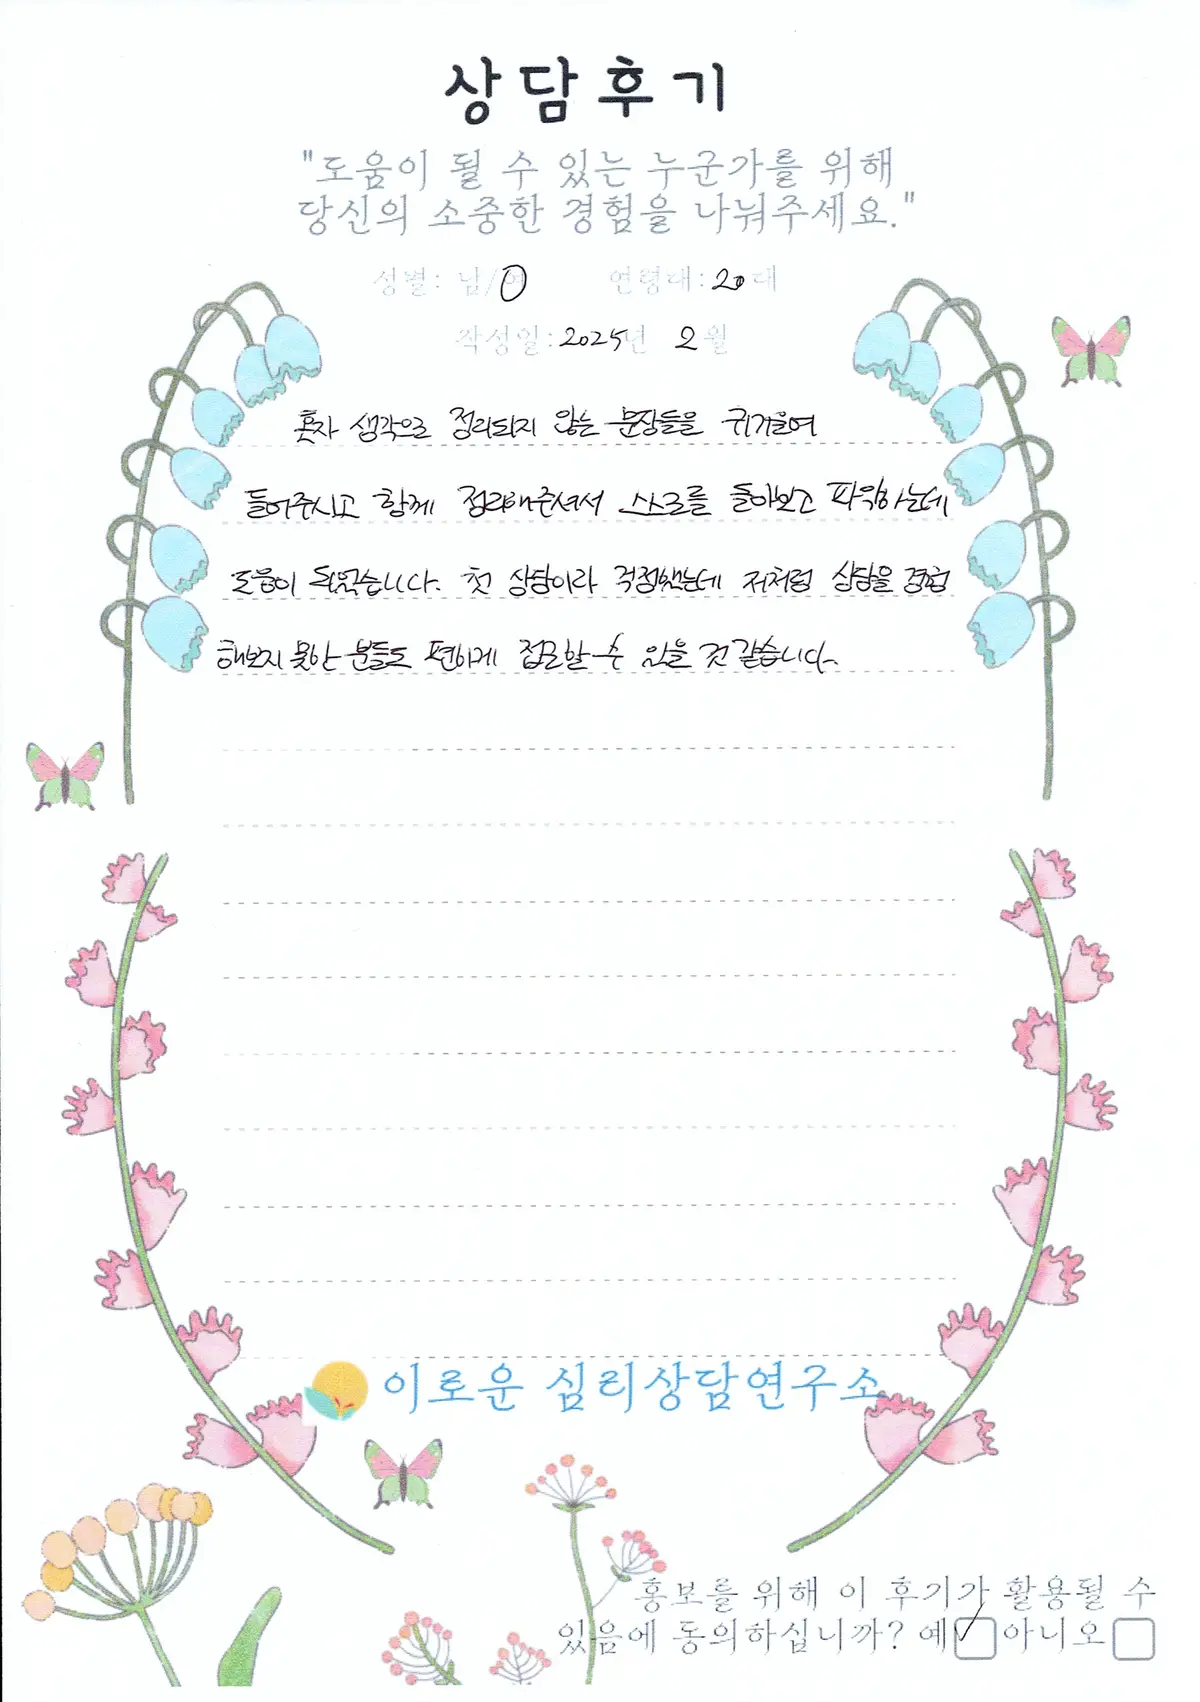 상담후기
"도움이 될 수 있는 누군가를 위해
당신의 소중한 경험을 나눠주세요."
성별: 남/여 연령대: 20대
작성일: 2025년 2월
혼자 생각으로 정리되지 않는 문장들을 귀기울여
들어주시고 함께 정리해주셔서 스스로를 돌아보고 파악하는데
도움이 되었습니다. 첫 상담이라 걱정했는데 저처럼 상담을 경험
해보지 못한 분들도 편하게 접근할 수 있을 것 같습니다.
이로운 심리상담연구소
홍보를 위해 이 후기가 활용될 수
있음에 동의하십니까? 예 아니오